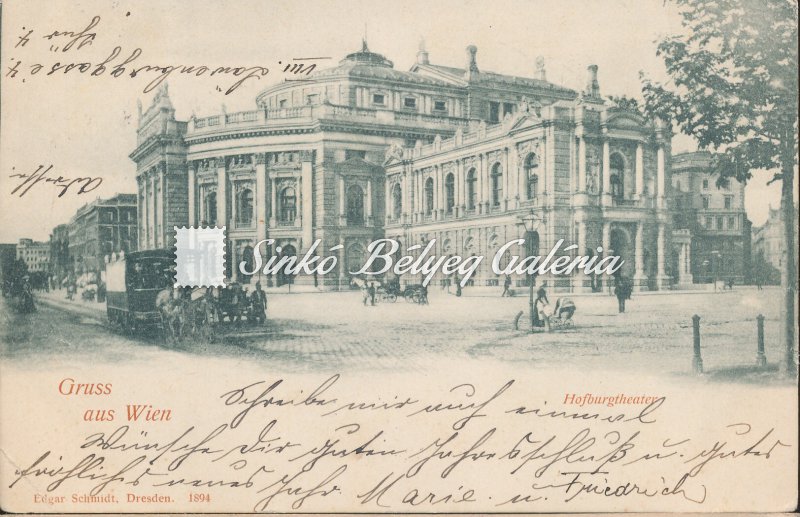 Löwenburggasse 4
VIII
Adresse
Sinkó Bélyeg Galéria
Gruss
aus Wien
Hofburgtheater
Schreibe mir auch einmal
Wünsche Dir guten Jahresschluß u. gutes
fröhliches neues Jahr Marie u. Friedrich
Edgar Schmidt, Dresden. 1894